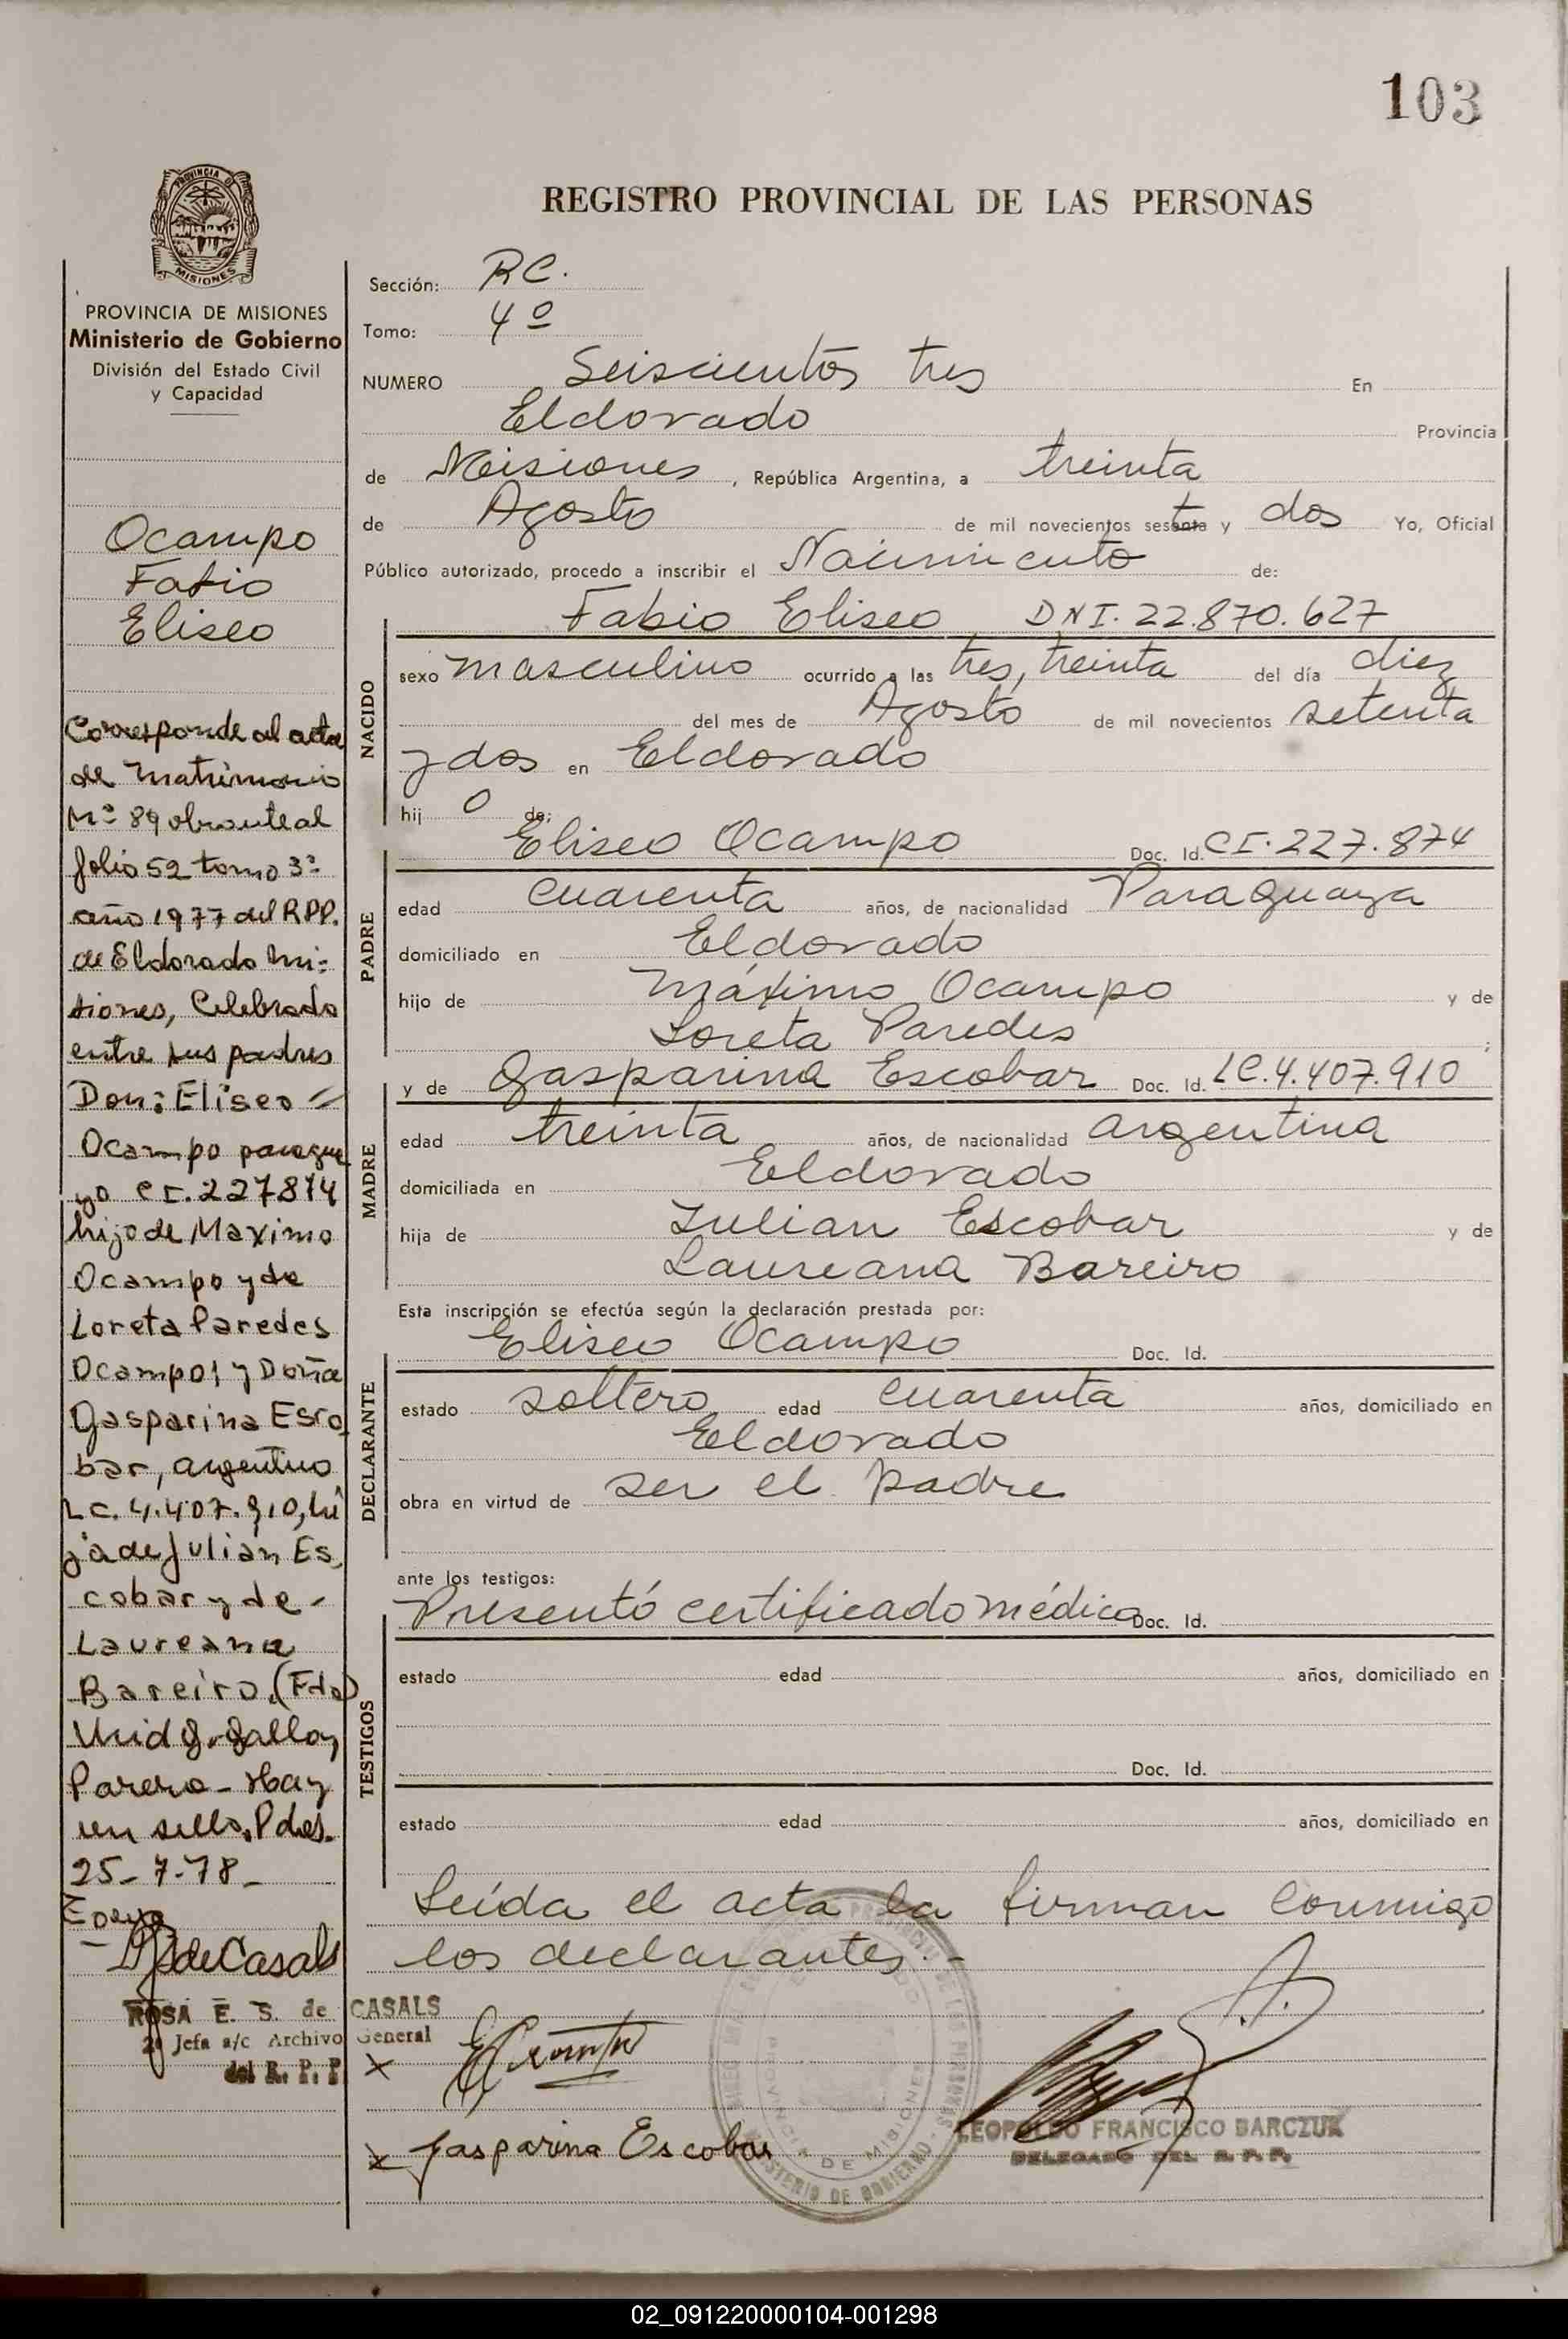 103
PROVINCIA DE
MISIONES
PROVINCIA DE MISIONES
Ministerio de Gobierno
División del Estado Civil
y Capacidad
Ocampo
Fabio
Eliseo
Corresponde al acta
de Matrimonio
Nº 89 obrante al
folio 52 tomo 3º
año 1977 del R.P.P.
de Eldorado Mi-
siones, Celebrado
entre sus padres
Don: Eliseo =
Ocampo paragua
yo CI. 227874
hijo de Maximo
Ocampo y de
Loreta Paredes
Ocampo; y Doña
Gasparina Esco
bar, argentino
L.C. 4.407.910, hi
ja de Julián Es
cobar y de -
Laureana
Bareiro. (Fdo)
Parera - Hay
un sello. Pdas.
25-7-78-
de Casals
ROSA E. S. de CASALS
2ª Jefa a/c Archivo General
del R. P. P
REGISTRO PROVINCIAL DE LAS PERSONAS
Sección: RC.
Tomo: 4º
NUMERO Seiscientos tres En
Eldorado Provincia
de Misiones, República Argentina, a treinta
de Agosto de mil novecientos sesenta y dos Yo, Oficial
Público autorizado, procedo a inscribir el Nacimiento de:
Fabio Eliseo DNI. 22.870.627
NACIDO
sexo masculino ocurrido a las tres, treinta del día diez
del mes de Agosto de mil novecientos setenta
y dos en Eldorado
hij o de:
Eliseo Ocampo Doc. Id. CI. 227.874
PADRE
edad cuarenta años, de nacionalidad Paraguaya
domiciliado en Eldorado
hijo de Máximo Ocampo y de
Loreta Paredes ;
y de Gasparina Escobar Doc. Id. LC. 4.407.910
MADRE
edad treinta años, de nacionalidad argentina
domiciliada en Eldorado
hija de Julian Escobar y de
Laureana Bareiro
Esta inscripción se efectúa según la declaración prestada por:
Eliseo Ocampo Doc. Id.
DECLARANTE
estado soltero edad cuarenta años, domiciliado en
Eldorado
obra en virtud de ser el padre
ante los testigos:
Presentó certificado médico Doc. Id.
TESTIGOS
estado edad años, domiciliado en
Doc. Id.
estado edad años, domiciliado en
Leída el acta la firman conmigo
los declarantes.-
x
x Gasparina Escobar
PROVINCIA DE MISIONES
MINISTERIO DE GOBIERNO
LEOPOLDO FRANCISCO BARCZUK
DELEGADO DEL R. P. P.
02_091220000104-001298